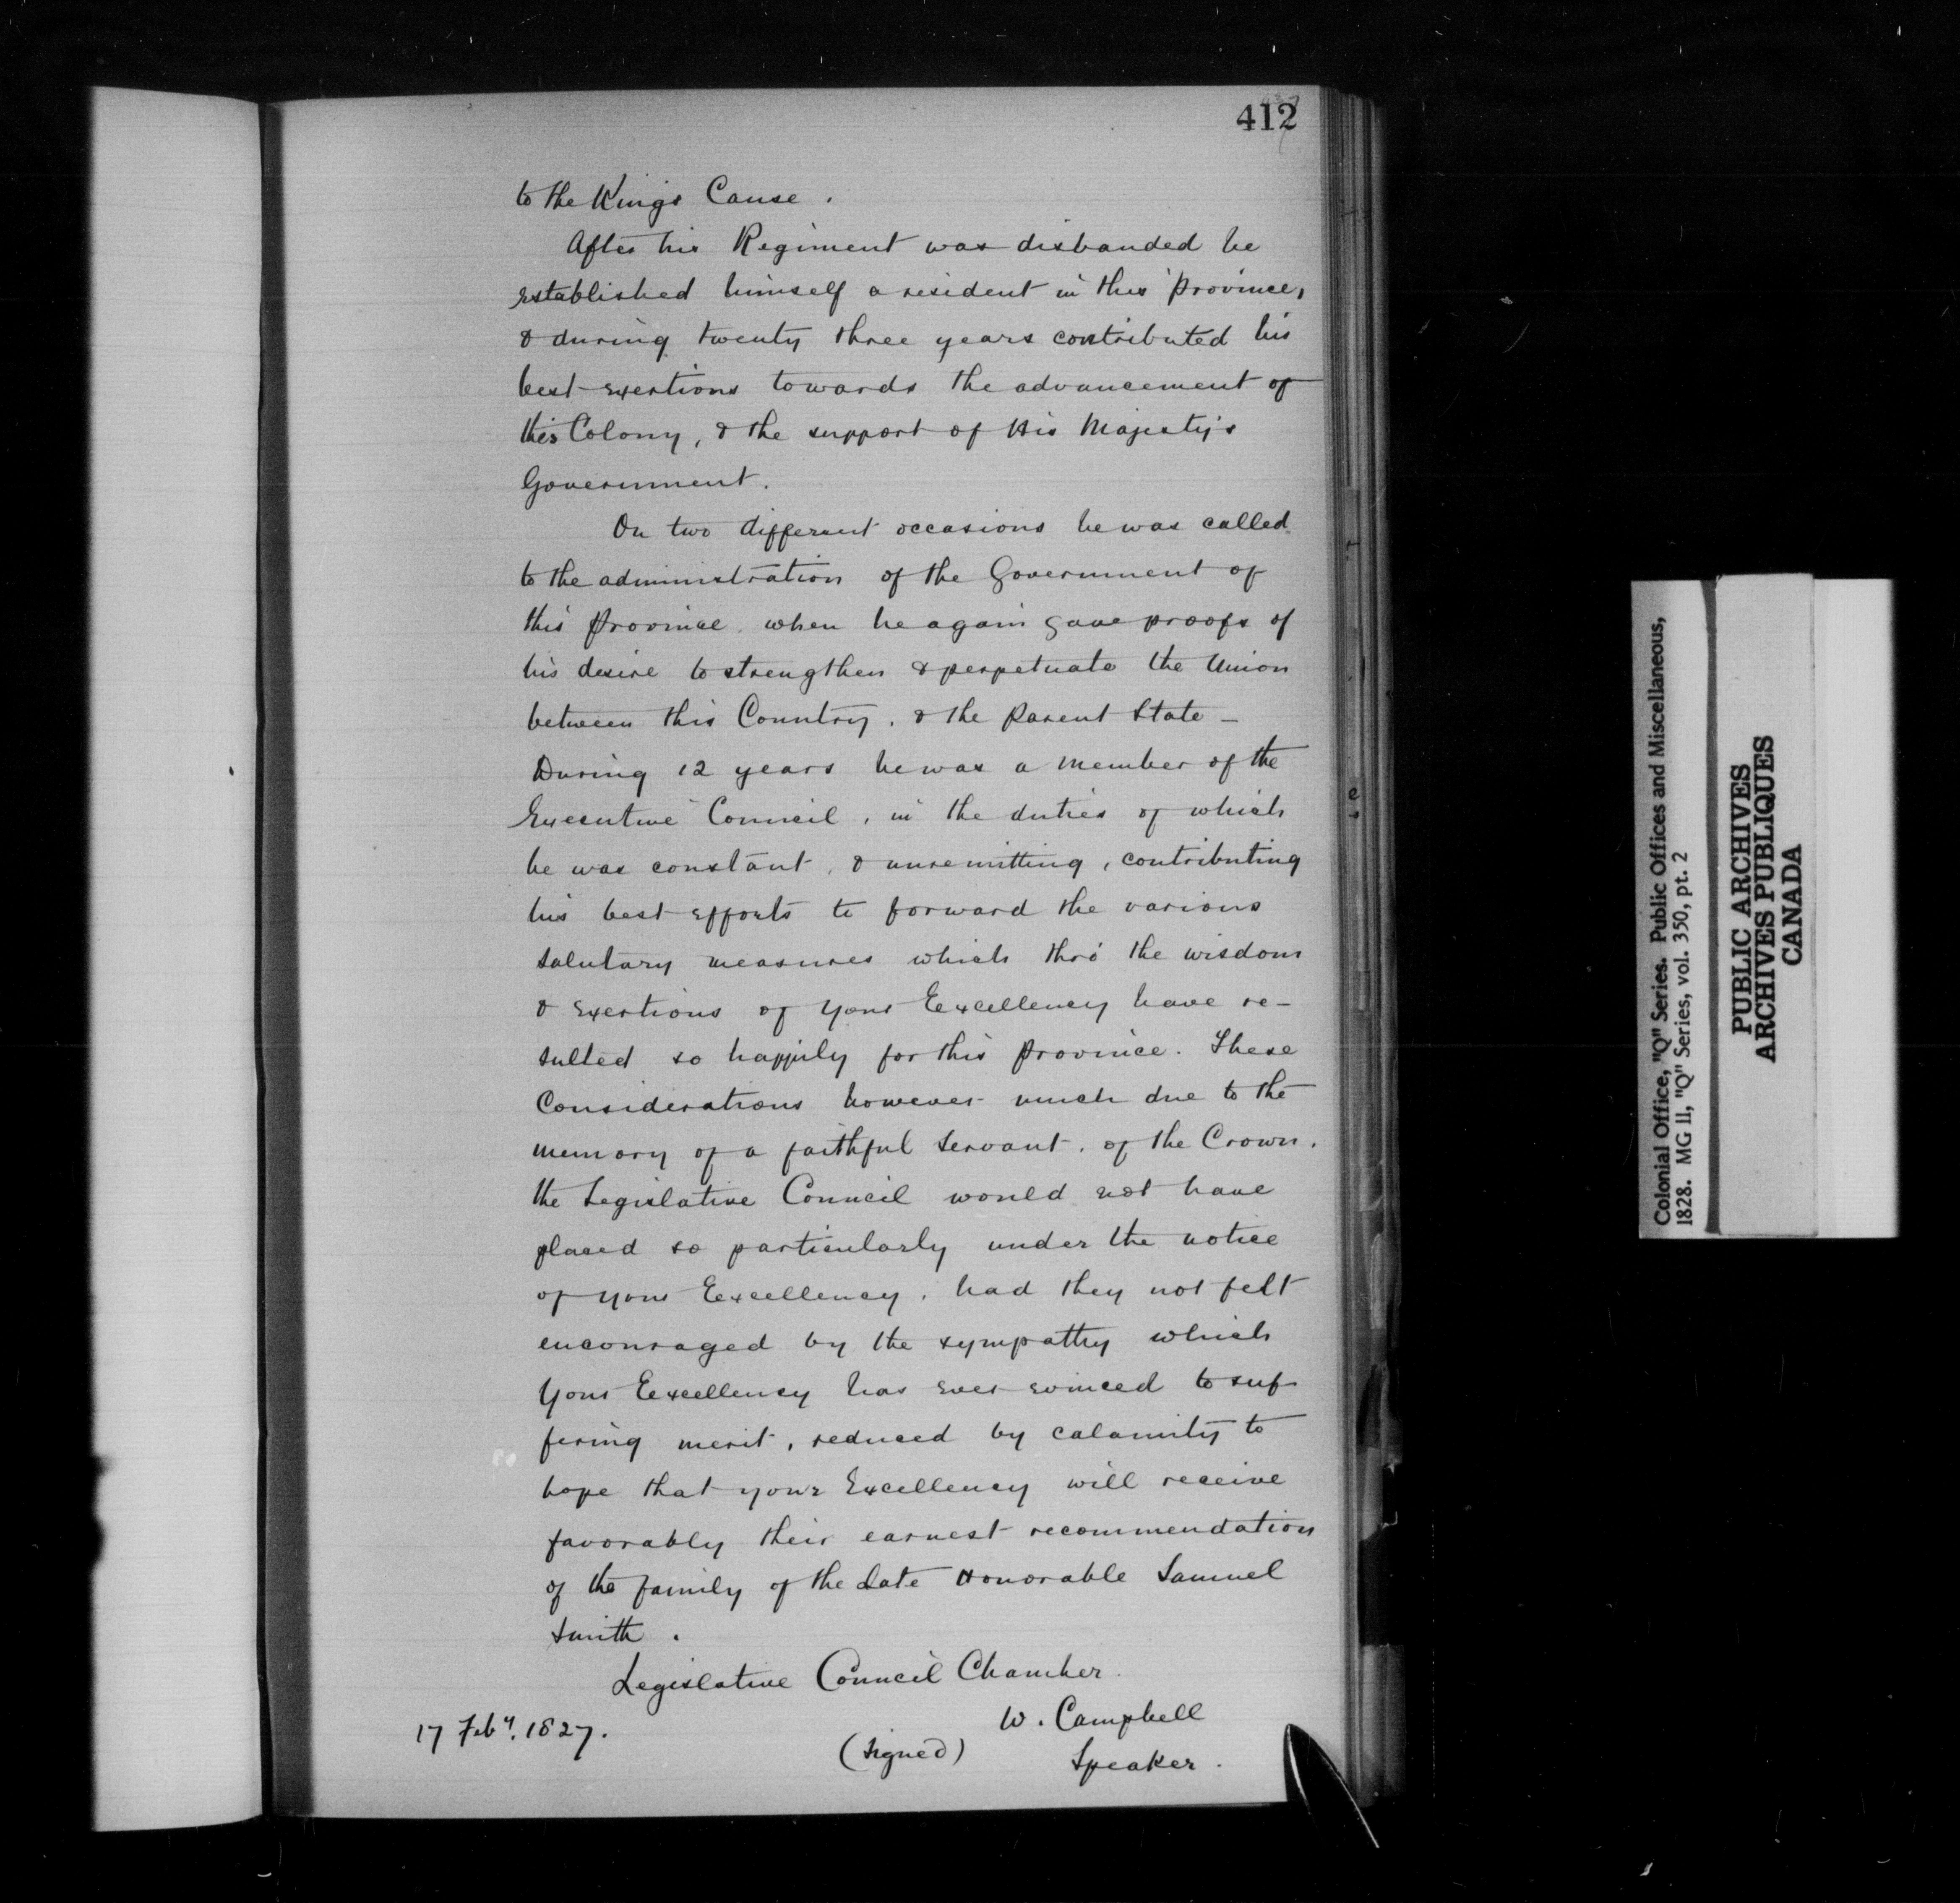 412
to the Kings Cause.
After his Regiment was disbanded he
established himself a resident in this province,
& during twenty three years contributed his
best exertions towards the advancement of
this Colony, & the support of His Majesty's
Government.
On two different occasions he was called
to the administration of the Government of
this province when he again gave proofs of
his desire to strengthen & perpetuate the Union
between this Country, & the parent State –
During 12 years he was a member of the
Executive Council, in the duties of which
he was constant, & unremitting, contributing
his best efforts to forward the various
salutary measures which thro' the wisdom
& exertions of your Excellency have re-
sulted so happily for this province. These
Considerations however much due to the
memory of a faithful servant, of the Crown,
the Legislative Council would not have
placed so particularly under the notice
of your Excellency, had they not felt
encouraged by the sympathy which
your Excellency has ever evinced to suf
fering merit, reduced by calamity to
hope that your Excellency will receive
favorably their earnest recommendation
of the family of the Late Honorable Samuel
Smith.
Legislative Council Chamber.
17 Feby. 1827.
W. Campbell
(signed)
Speaker.
Colonial Office, "Q" Series. Public Offices and Miscellaneous,
1828. MG 11, "Q" Series, vol. 350, pt. 2
PUBLIC ARCHIVES
ARCHIVES PUBLIQUES
CANADA